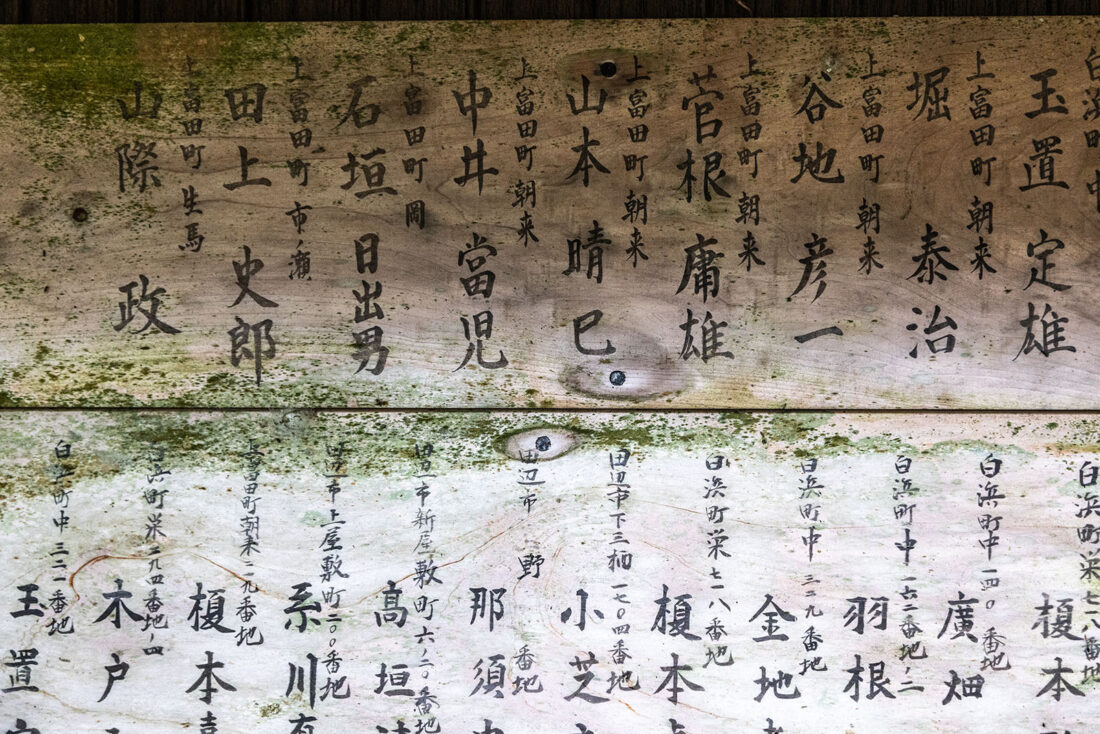 玉置定雄
上富田町朝来
堀泰治
上富田町朝来
谷地彦一
上富田町朝来
菅根庸雄
上富田町朝来
山本晴巳
上富田町朝来
中井當児
上富田町岡
石垣日出男
上富田町市ノ瀬
田上史郎
上富田町生馬
山際政
白浜町栄七一八番地
榎本
白浜町中一四〇番地
廣畑
白浜町中一六二番地ノ二
羽根
白浜町中三二九番地
金地
白浜町栄七一八番地
榎本
田辺市下三栖一七〇四番地
小芝
田辺市 野 番地
那須
田辺市新屋敷町六ノ二〇番地
高垣
田辺市上屋敷町二〇〇番地
系川
上富田町朝来一二九番地
榎本
白浜町栄二九四番地ノ四
木戸
白浜町中三二一番地
玉置